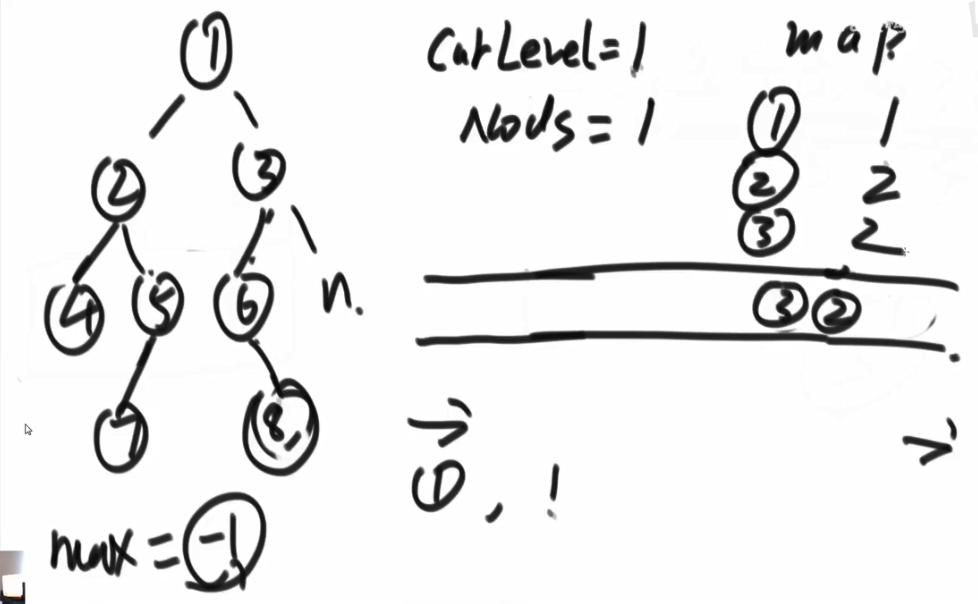 1
2 3
4 5 6 n.
7 8
max = -1
CurLevel = 1
Nods = 1
map
1 1
2 2
3 2
3 2
1 , !